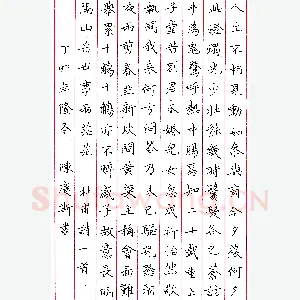 人生不相見動如參與商今夕復何夕
此燈燭光少壯能幾時鬢髮各已蒼訪
半為鬼驚呼熱中腸焉知二十載重上
子堂昔別君未婚兒女忽成行怡然敬
執問我來何方問答乃未已驅兒羅酒
夜雨剪春韭新炊間黃粱主稱會面難
舉累十觴十觴亦不醉感子故意長
隔山岳世事兩茫茫 杜甫詩一首
丁酉年隆冬 陳漢衛書